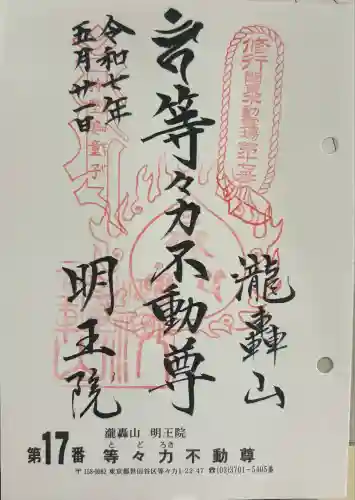 令和七年
五月廿一日
等々力不動尊
瀧轟山
明王院
瀧轟山 明王院
とどろき
第17番 等々力不動尊
〒158-0082 東京都世田谷区等々力1-22-47 ☎(03)3701-5405番